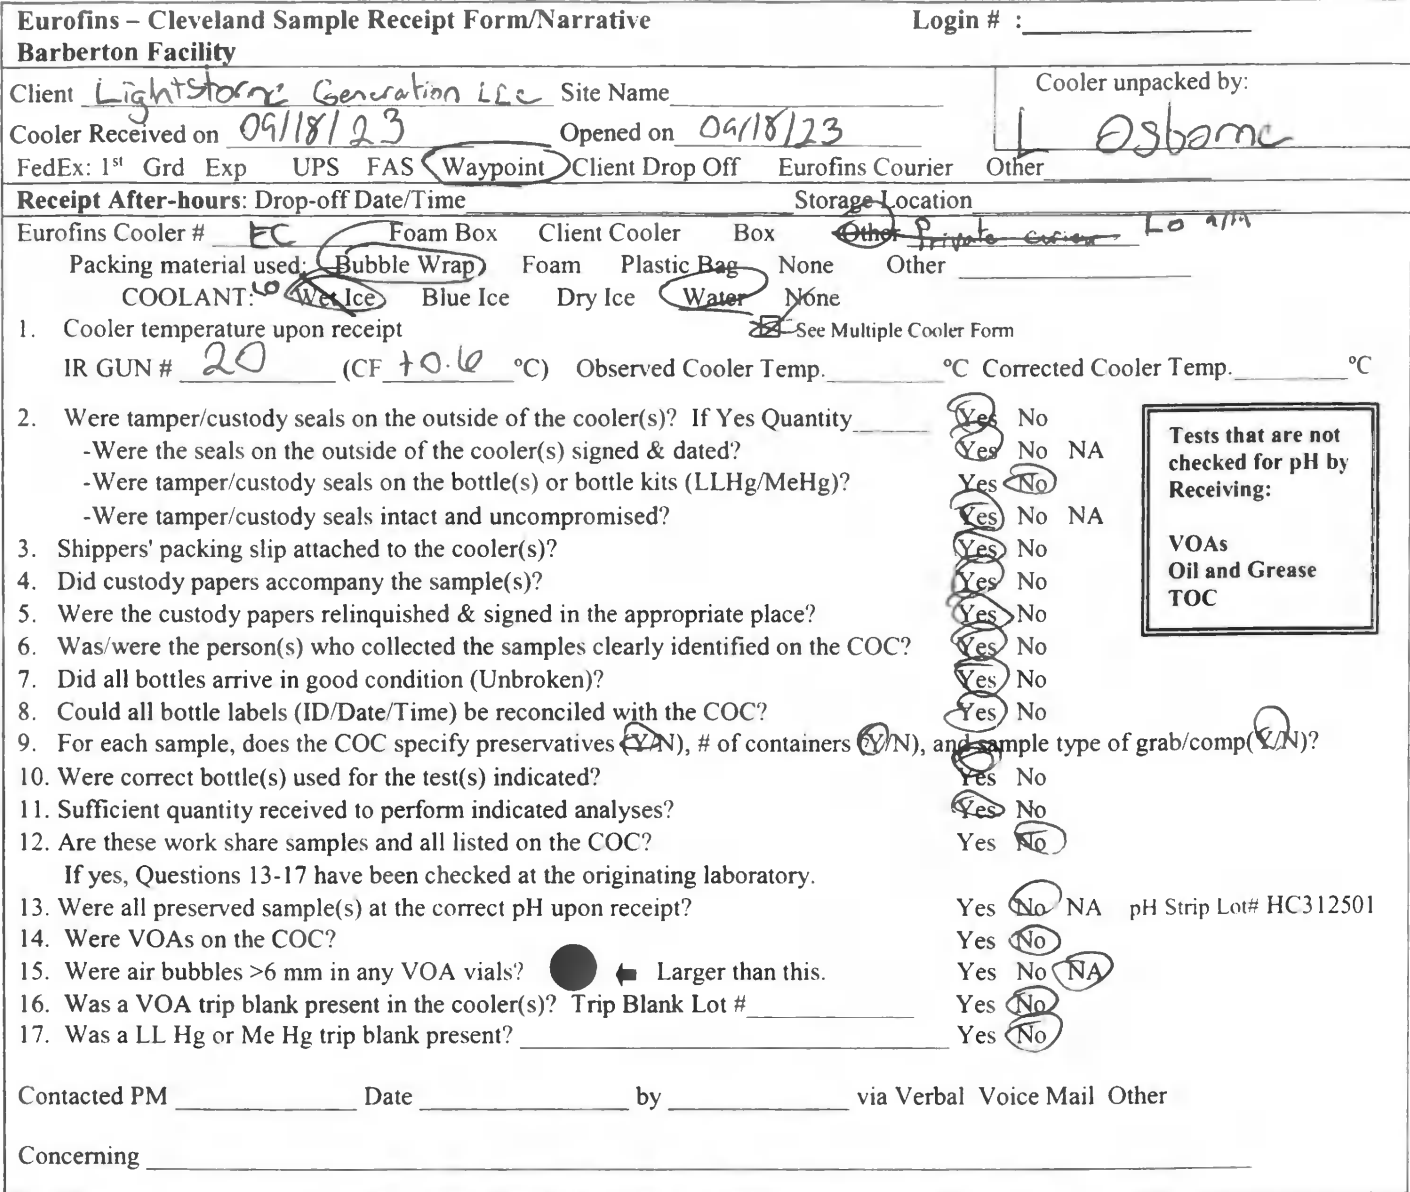 Eurofins – Cleveland Sample Receipt Form/Narrative Login # :
Barberton Facility
Client Lightstorne Generation LLC Site Name Cooler unpacked by:
Cooler Received on 09/18/23 Opened on 09/18/23 L Osborne
FedEx: 1st Grd Exp UPS FAS Waypoint Client Drop Off Eurofins Courier Other
Receipt After-hours: Drop-off Date/Time Storage Location
Eurofins Cooler # EC Foam Box Client Cooler Box Other Private LO
Packing material used: Bubble Wrap Foam Plastic Bag None Other
COOLANT: LO Wet Ice Blue Ice Dry Ice Water None
1. Cooler temperature upon receipt See Multiple Cooler Form
IR GUN # 20 (CF +0.6 °C) Observed Cooler Temp. °C Corrected Cooler Temp. °C
2. Were tamper/custody seals on the outside of the cooler(s)? If Yes Quantity Yes No
-Were the seals on the outside of the cooler(s) signed & dated? Yes No NA
-Were tamper/custody seals on the bottle(s) or bottle kits (LLHg/MeHg)? Yes No
-Were tamper/custody seals intact and uncompromised? Yes No NA
3. Shippers' packing slip attached to the cooler(s)? Yes No
4. Did custody papers accompany the sample(s)? Yes No
5. Were the custody papers relinquished & signed in the appropriate place? Yes No
6. Was/were the person(s) who collected the samples clearly identified on the COC? Yes No
7. Did all bottles arrive in good condition (Unbroken)? Yes No
8. Could all bottle labels (ID/Date/Time) be reconciled with the COC? Yes No
Tests that are not
checked for pH by
Receiving:
VOAs
Oil and Grease
TOC
9. For each sample, does the COC specify preservatives (Y/N), # of containers (Y/N), and sample type of grab/comp(Y/N)?
10. Were correct bottle(s) used for the test(s) indicated? Yes No
11. Sufficient quantity received to perform indicated analyses? Yes No
12. Are these work share samples and all listed on the COC? Yes No
If yes, Questions 13-17 have been checked at the originating laboratory.
13. Were all preserved sample(s) at the correct pH upon receipt? Yes No NA pH Strip Lot# HC312501
14. Were VOAs on the COC? Yes No
15. Were air bubbles >6 mm in any VOA vials? Larger than this. Yes No NA
16. Was a VOA trip blank present in the cooler(s)? Trip Blank Lot # Yes No
17. Was a LL Hg or Me Hg trip blank present? Yes No
Contacted PM Date by via Verbal Voice Mail Other
Concerning